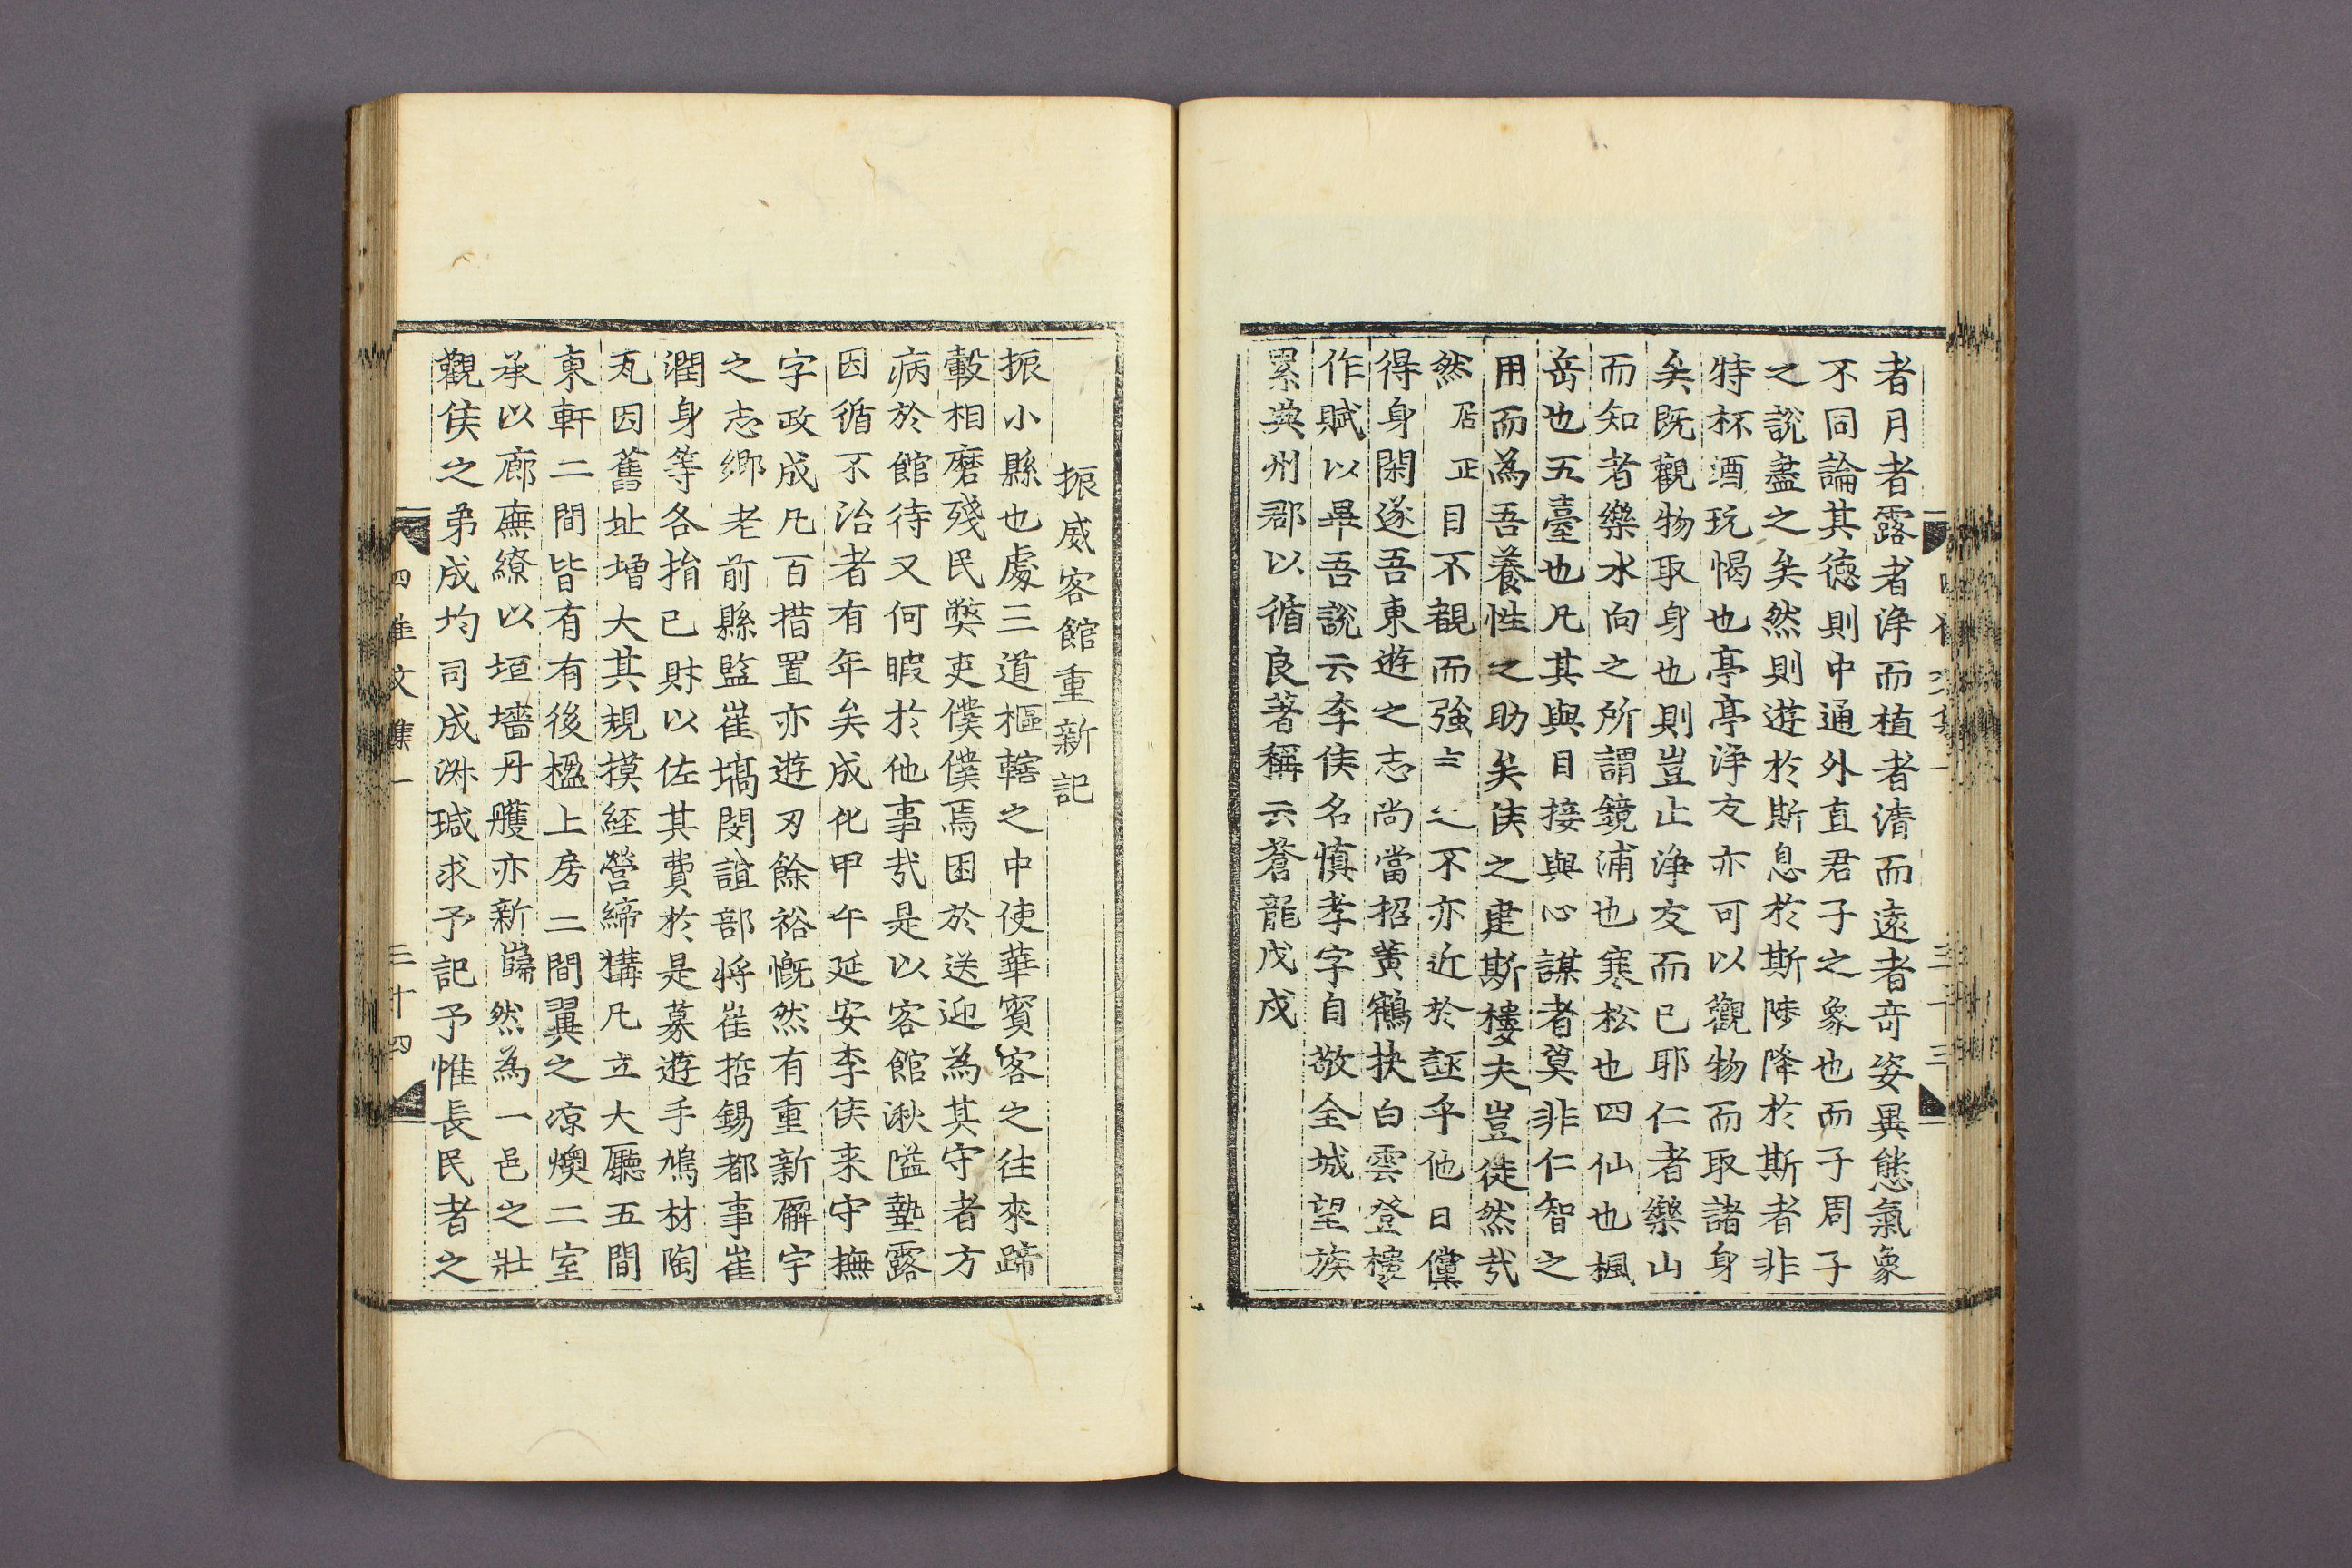 者月者露者淨而植者淸而遠者奇姿異態氣象
不同論其德則中通外直君子之象也而子周子
之說盡之矣然則遊於斯息於斯陟降於斯者非
特杯酒玩愒也亭亭淨友亦可以觀物而取諸身
矣旣觀物取身也則豈止淨友而已耶仁者樂山
而知者樂水向之所謂鏡浦也寒松也四仙也楓
岳也五臺也凡其與目接與心謀者莫非仁智之
用而爲吾養性之助矣侯之建斯樓夫豈徒然哉
然居正目不覩而強之不亦近於誣乎他日儻
得身閑遂吾東遊之志尙當招黃鶴抉白雲登樓
作賦以畢吾說云李侯名愼孝字自敬全城望族
累典州郡以循良著稱云蒼龍戊戌
三十三
振威客館重新記
振小縣也處三道樞轄之中使華賓客之往來蹄
轂相磨殘民弊吏僕僕焉困於送迎爲其守者方
病於館待又何暇於他事哉是以客館湫隘墊露
因循不治者有年矣成化甲午延安李侯来守撫
字政成凡百措置亦遊刃餘裕慨然有重新廨宇
之志鄕老前縣監崔塙閔誼部將崔哲錫都事崔
潤身等各捐己財以佐其費於是募遊手鳩材陶
瓦因舊址增大其規摸經營締構凡立大廳五間
東軒二間皆有有後楹上房二間翼之凉燠二室
承以廊廡繚以垣墻丹雘亦新巋然爲一邑之壯
觀侯之弟成均司成淋瑊求予記予惟長民者之
四佳文集一
三十四